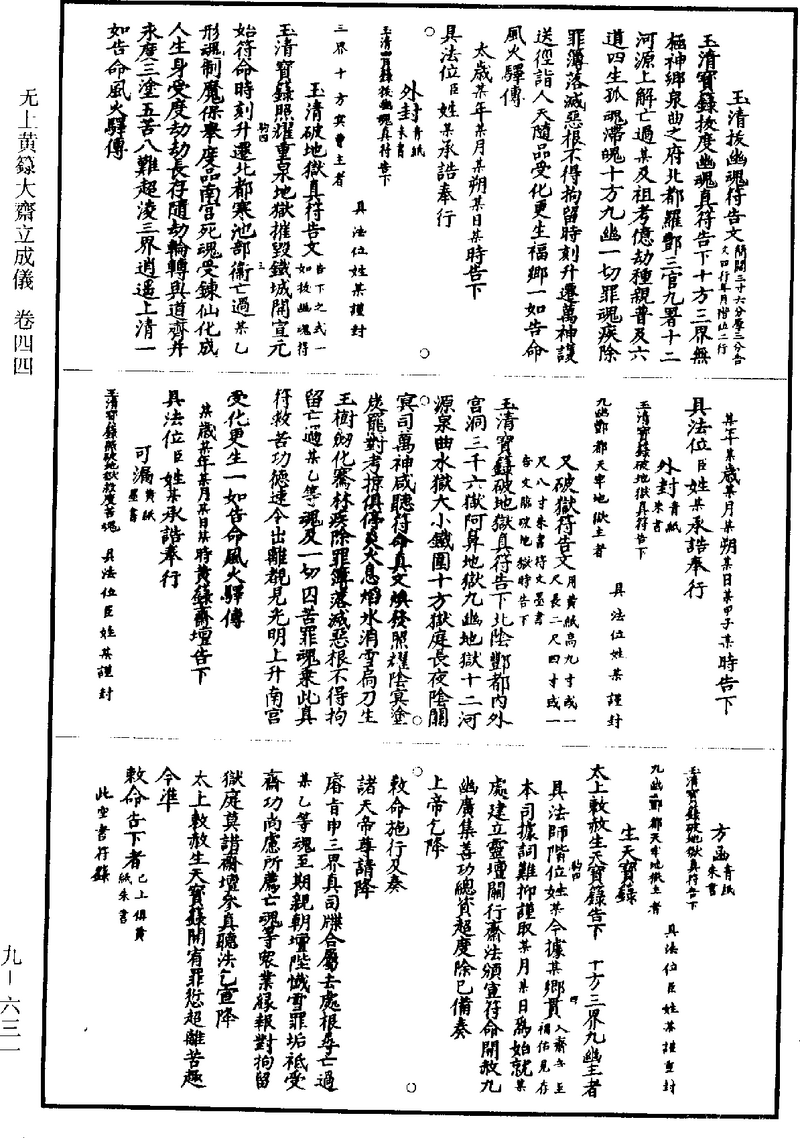 玉清拔幽魂符告文簡闊三寸六分厚三分告文四行年月階位二行
玉清寶籙拔度幽魂真符告下十方三界無
極神鄉泉曲之府北都羅酆三官九署十二
河源上解亡過某及祖考億劫種親普及六
道四生孤魂滯魄十方九幽一切罪魂疾除
罪簿落滅惡根不得拘留時刻升遷萬神護
送徑詣人天隨品受化更生福鄉一如告命
風火驛傳
太歲某年某月某朔某日某時告下
具法位臣姓某承誥奉行
外封青紙朱書
玉清寶籙拔幽魂真符告下
三界十方冥曹主者 具法位姓某謹封
玉清破地獄真符告文告下之式一如拔幽魂符
玉清寶籙照耀重泉地獄摧毀鐵城開宣元
始符命時刻升遷北都寒池部衛亡過某乙
形魂制魔保舉度品南宮死魂受鍊仙化成
人生身受度劫劫長存隨劫輪轉與道齊并
永度三塗五苦八難超凌三界逍遙上清一
如告命風火驛傳
某年某歲某月某朔某日某甲子某時告下
具法位臣姓某承誥奉行
外封青紙朱書
玉清寶籙破地獄真符告下
九幽酆都天牢地獄主者 具法位姓某謹封
又破獄符告文用黃紙高九寸或一尺長二尺四寸或一尺八寸朱書符文墨書告文臨破地獄時告下
玉清寶籙破地獄真符告下北陰酆都內外
宮洞三千六獄阿鼻地獄九幽地獄十二河
源泉曲水獄大小鐵圍十方獄庭長夜陰關
冥司萬神咸聽符命真文煥發照耀陰冥塗
炭罷對考掠俱停炎火息焰水消雪扃刀生
玉樹劒化騫林疾除罪簿落滅惡根不得拘
留亡過某乙等魂及一切囚苦罪魂乘此真
符救苦功德速令出離覩見光明上升南宮
受化更生一如告命風火驛傳
某歲某年某月某日某時黃籙齋壇告下
具法位臣姓某承誥奉行
可漏黃紙墨書
玉清寶籙照破地獄救度苦魂 具法位臣姓某謹封
方函青紙朱書
玉清寶籙破地獄真符告下
九幽酆都天牢地獄主者 具法位臣姓某謹重封
生天寶籙
太上敕赦生天寶籙告下 十方三界九幽主者
具法師階位姓某今據某鄉貫入齋意至禍佑見存
本司據詞難抑謹取某月某日爲始就某
處建立靈壇關行齋法頒宣符命開赦九
幽廣集善功總資超度除已備奏
上帝乞降
敕命施行及奏
諸天帝尊請降
睿旨申三界真司牒合屬去處根尋亡過
某乙等魂至期親朝壇陛懺雪罪垢祗受
齋功尚慮所薦亡魂等衆業緣報對拘留
獄庭莫詣齋壇參真聽法乞宣降
太上敕赦生天寶籙開宥罪愆超離苦趣
令準
敕命告下者已上俱黃紙朱書
此空書符籙
无上黄籙大齋立成儀 卷四四
九－六三一